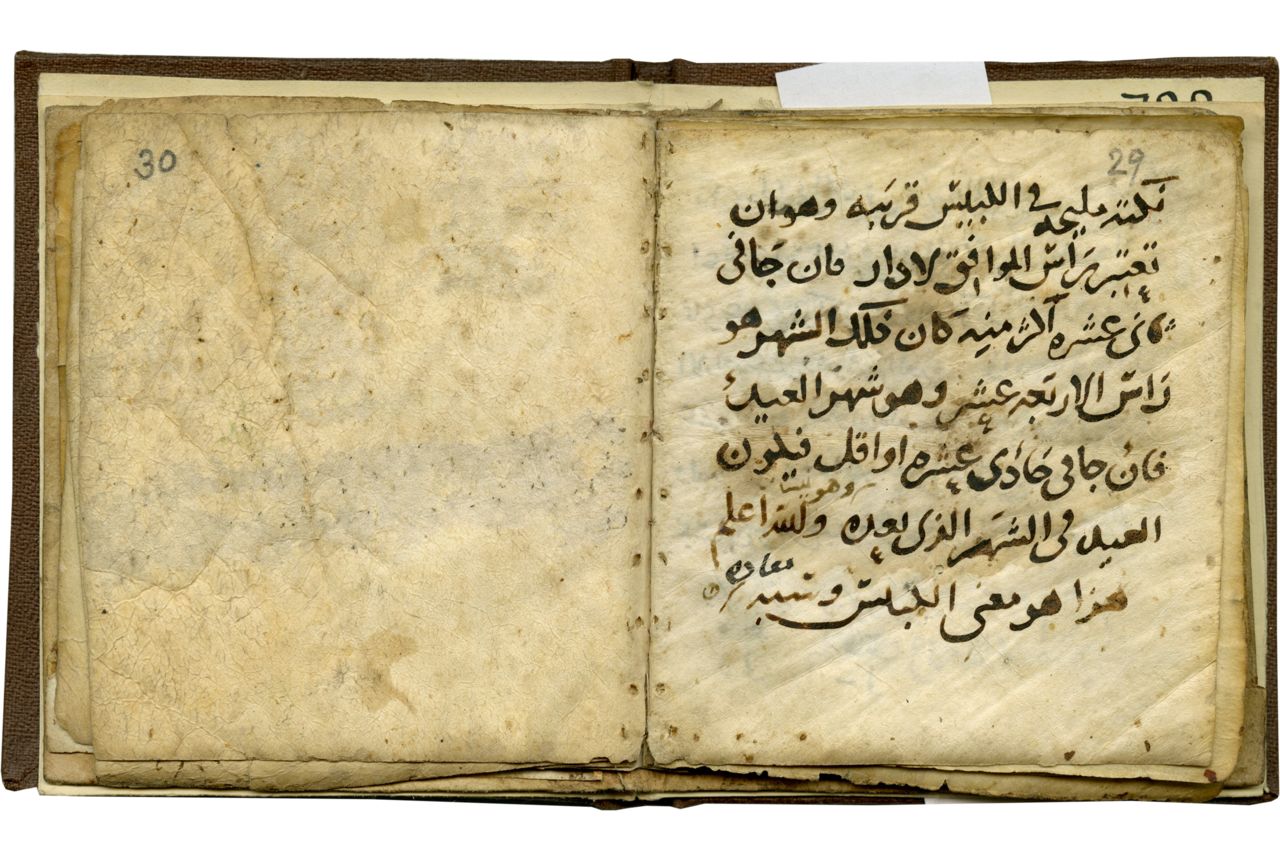 29
نكته مليحه في الكبيس قريبه وهو ان
تعتبر براس الموافق لادار فان جا في
ثاني عشره اكثر منه كان ذلك الشهر هو
راس الاربعه عشر وهو شهر العيد
فان جا في حادى عشره او اقل فيكون
العيد في الشهر الذى بعده والله اعلم
هذا هو معنى الكبيس وشبه
30